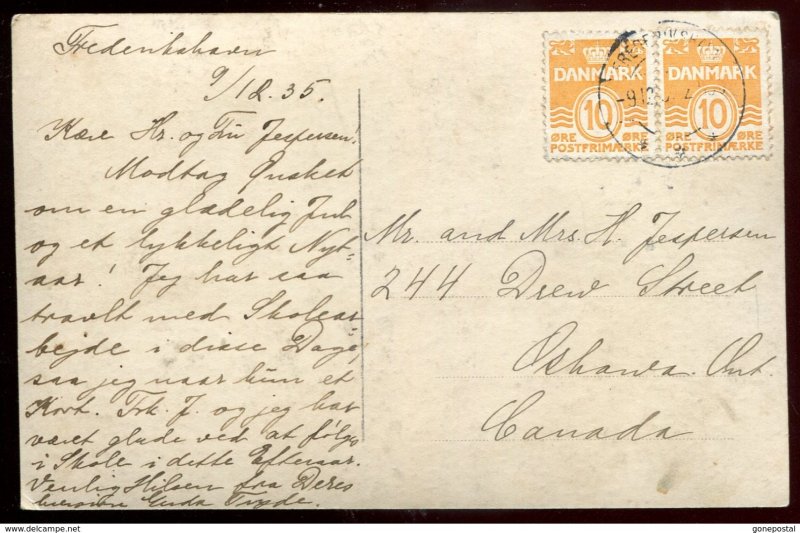 Frederikshavn
9/12.35.
Kære Hr. og Fru Jespersen!
Modtag Ønsket
om en glædelig Jul
og et lykkeligt Nyt-
aar! Jeg har saa
travlt med Skolear-
bejde i disse Dage,
saa jeg naar kun et
Kort. Frk. J. og jeg har
været glade ved at følge
i Skole i dette Efteraar.
Venlig Hilsen fra Deres
Gerda
DANMARK
10
ØRE ØRE
POSTFRIMÆRKE
DANMARK
10
ØRE ØRE
POSTFRIMÆRKE
Mr. and Mrs. H. Jespersen
244 Drew Street
Oshawa. Ont.
Canada
© gonepostal